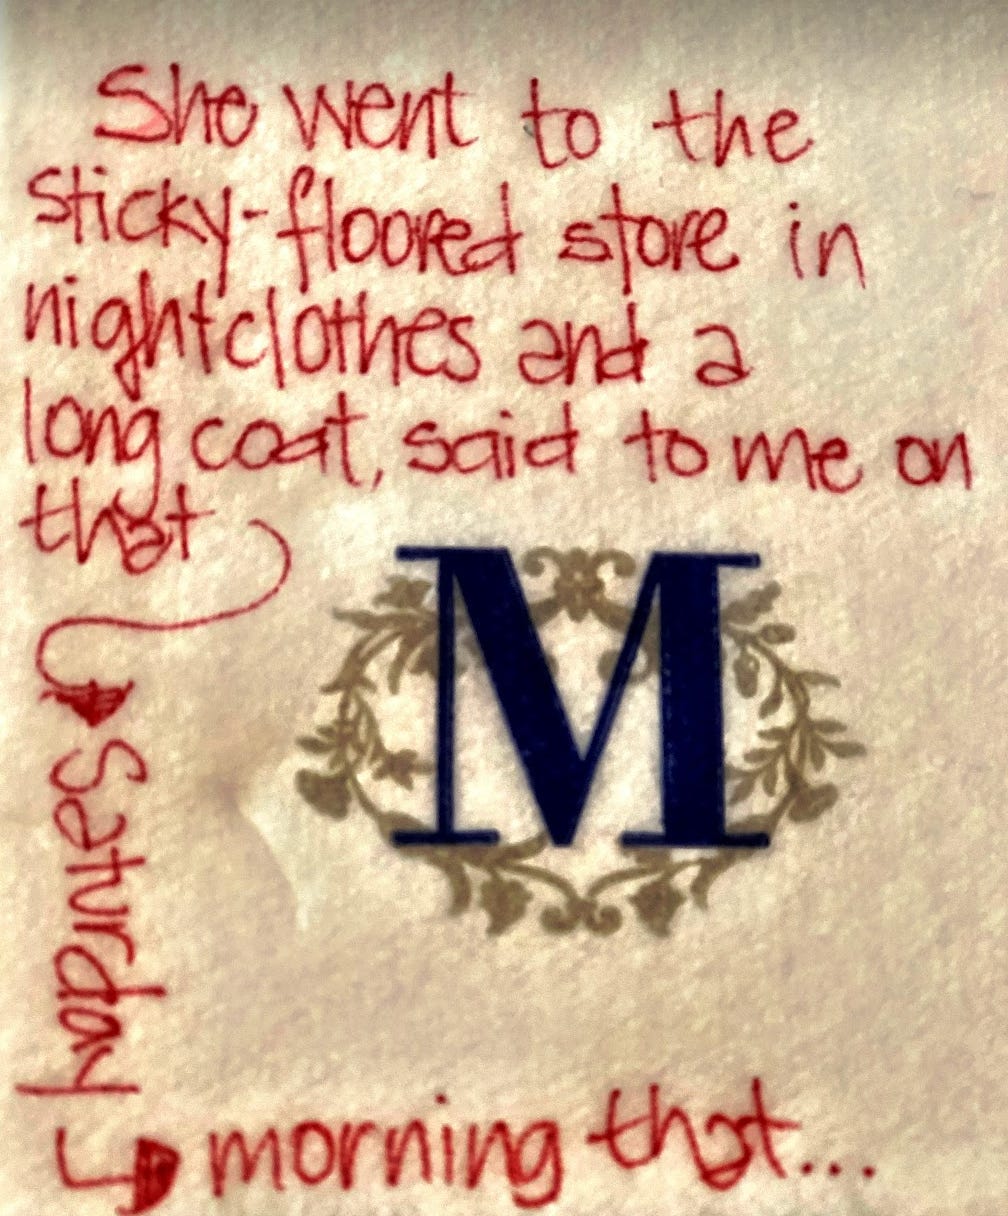 She went to the
sticky-floored store in
nightclothes and a
long coat, said to me on
that
M
Saturday
morning that...